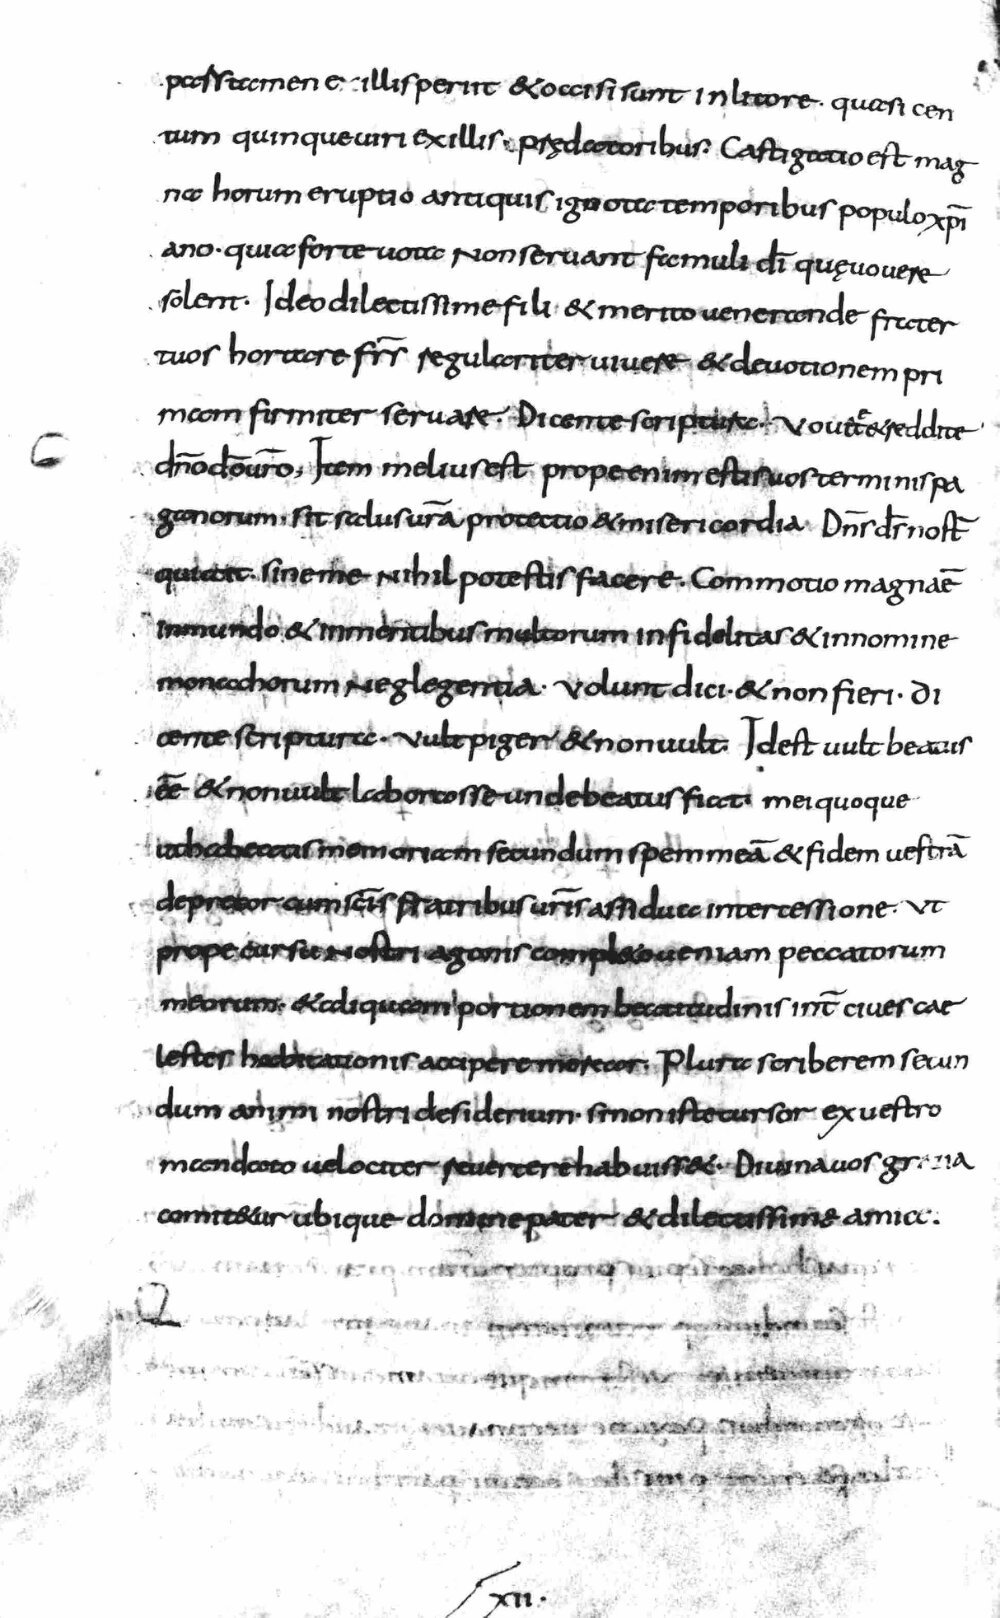 pars tamen ex illis periit & occisi sunt in litore. quasi cen
tum quinque viri ex illis. prędatoribus. Castigatio est mag
na horum eruptio antiquis ignota temporibus populo xp̄i
ano. quia forte vota Non servant famuli dī quę vovere
solent. Ideo dilectissime fili & merito venerande frater
tuos hortare fr̄s regulariter vivere & devotionem pri
mam firmiter servare. Dicente scriptura. Vovete & reddite
dn̄o dō vr̄o, Item melius est prope enim estis vos terminis pa
ganorum. sit salus vr̄a protectio & misericordia Dn̄s dr̄ nost̄
qui ait. sine me Nihil potestis facere. Commotio magna ē
in mundo & in mentibus multorum infidelitas & in nomine
monachorum Neglegentia. Volunt dici. & non fieri. Di
cente scriptura. Vult piger & non vult. Id est vult beatus
ēē & non vult laborasse unde beatus fiat. mei quoque
ut habeatis memoriam secundum spem meā & fidem vestrā
deprecor cum sc̄is fratribus vr̄is assidua intercessione. Ut
prope cursu Nostri agonis completo veniam peccatorum
meorum. & aliquam portionem beatitudinis int̄ cives cae
lestes habitationis accipere merear. Plura scriberem secun
dum animi nostri desiderium. si non iste cursor ex vestro
mandato velociter revertere habuiss&. Divina vos gratia
comit&ur ubique domine pater & dilectissime amice.
xii.